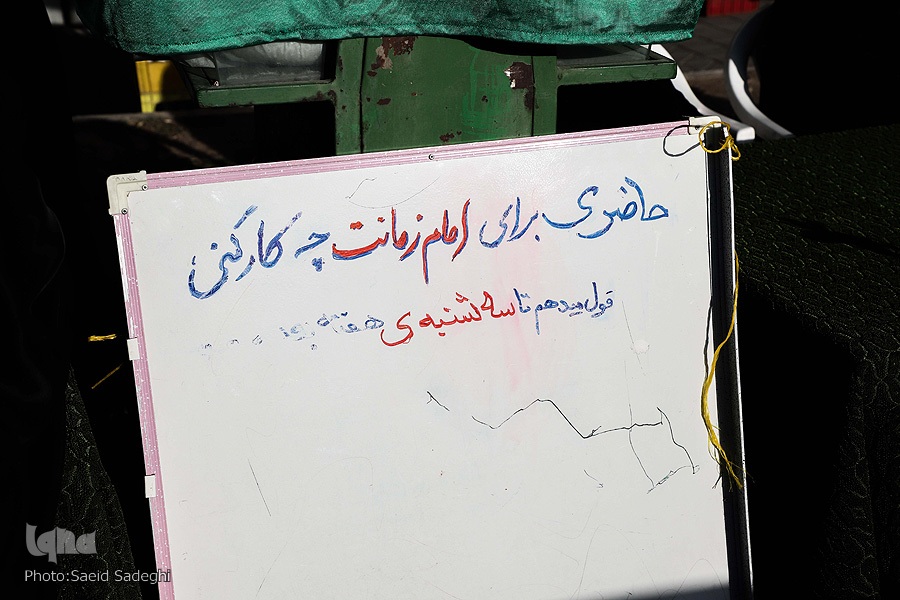 حاضری برای امام زمانت چه کار کنی
قول میدهم تا سه شنبه ی هفته بعد ....
iqna
Photo:Saeid Sadeghi